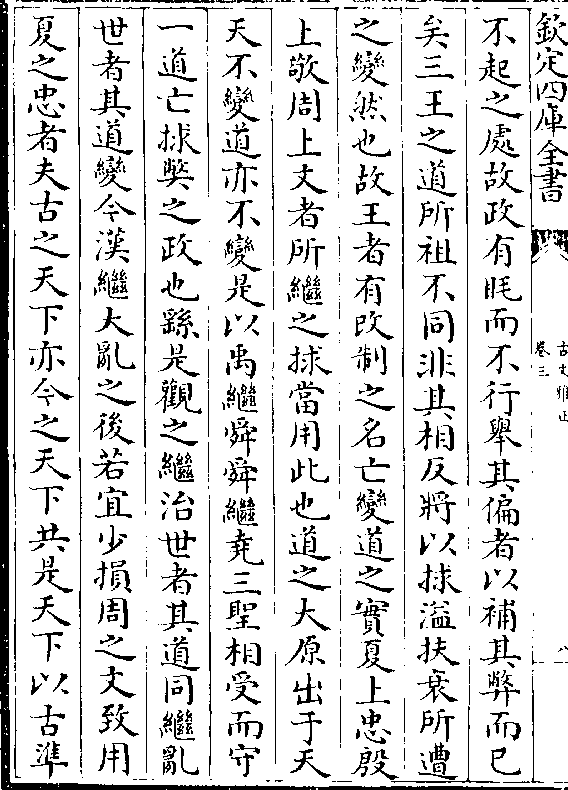 欽定四庫全書
古文雅正
卷三
八
不起之處故政有眊而不行舉其偏者以補其弊而已
矣三王之道所祖不同非其相反將以捄溢扶衰所遭
之變然也故王者有改制之名亡變道之實夏上忠殷
上敬周上文者所繼之捄當用此也道之大原出于天
天不變道亦不變是以禹繼舜舜繼堯三聖相受而守
一道亡捄獘之政也繇是觀之繼治世者其道同繼亂
世者其道變今漢繼大亂之後若宜少損周之文致用
夏之忠者夫古之天下亦今之天下共是天下以古準